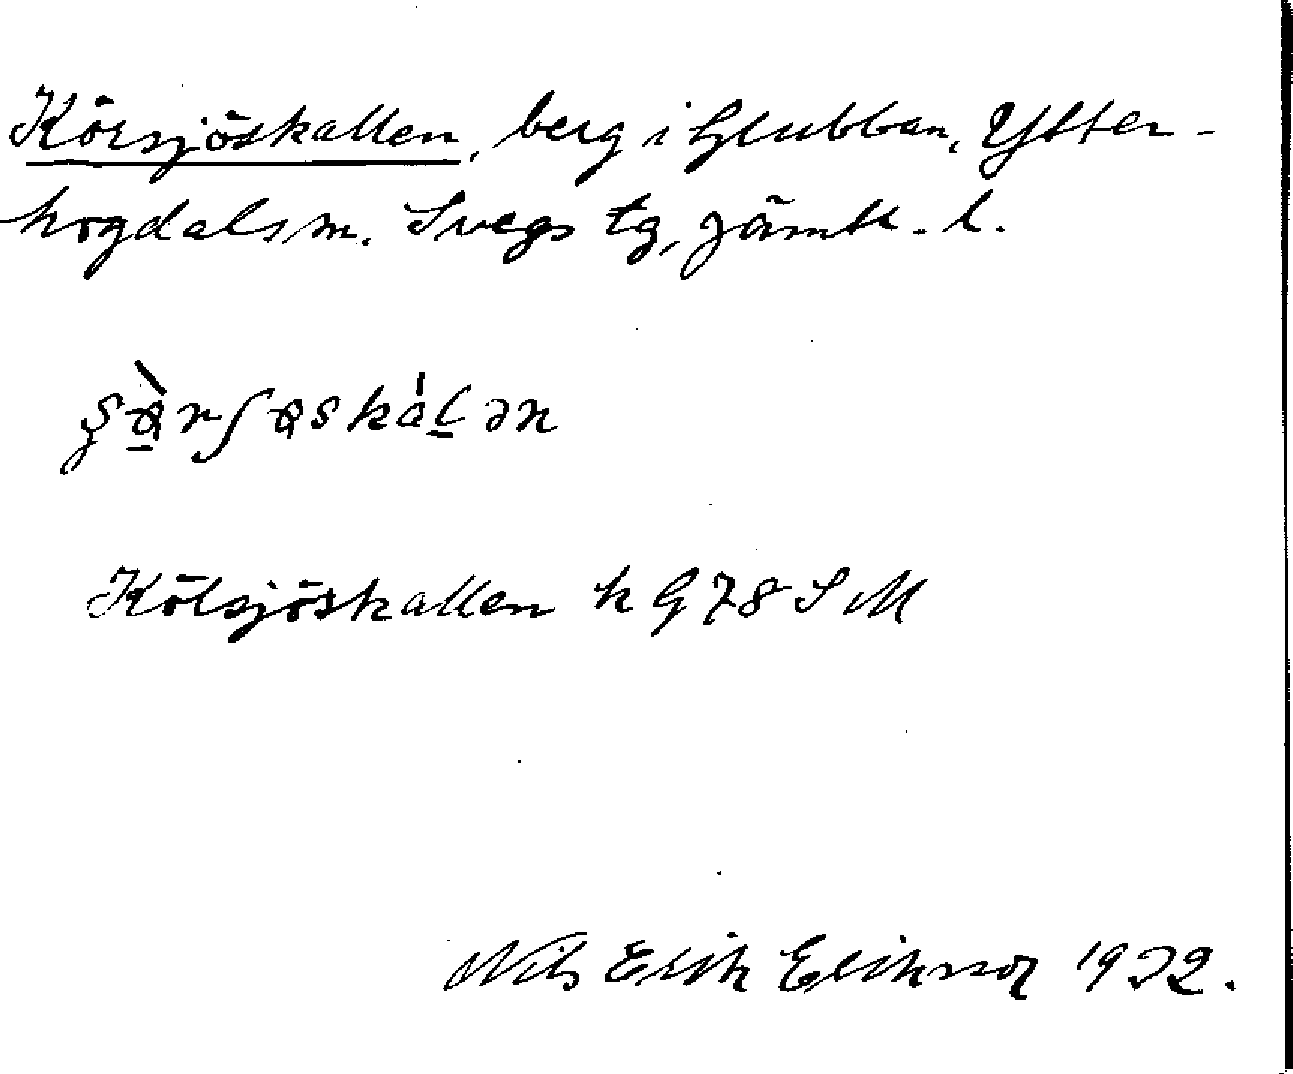 Körsjöskallen, berg i Grubban, Ytter-
hogdals sn. Svegs tg, Jämtl. l.
Kölsjöskallen k G 78 S M
Nils Erik Eriksson 1932.